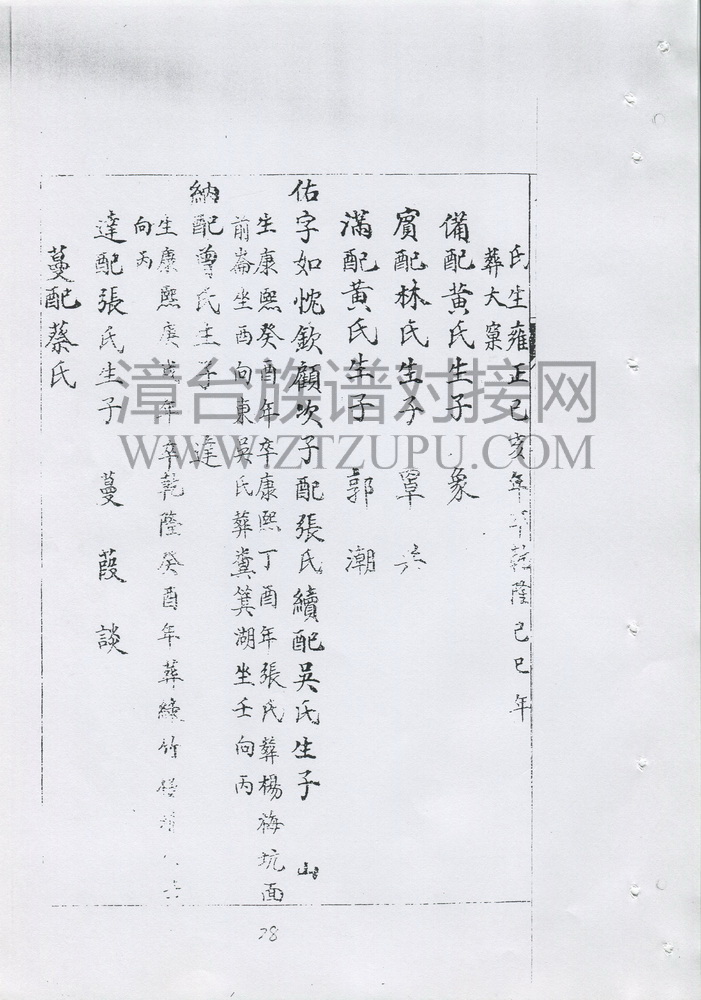 氏生雍正己亥年卒乾隆己巳年
葬大窠
備配黃氏生子 象
賓配林氏生子 覃
滿配黃氏生子 郭 潮
佑字如忱欽顧次子配張氏續配吳氏生子
生康熙癸酉年卒康熙丁酉年張氏葬楊梅坑面
前崙坐西向東吳氏葬糞箕湖坐壬向丙
納配曾氏生子 達
生康熙庚戌年卒乾隆癸酉年葬綠竹
向丙
達配張氏生子 蔓 葭 談
蔓配蔡氏
28
漳台族谱对接网
WWW.ZTZUPU.COM